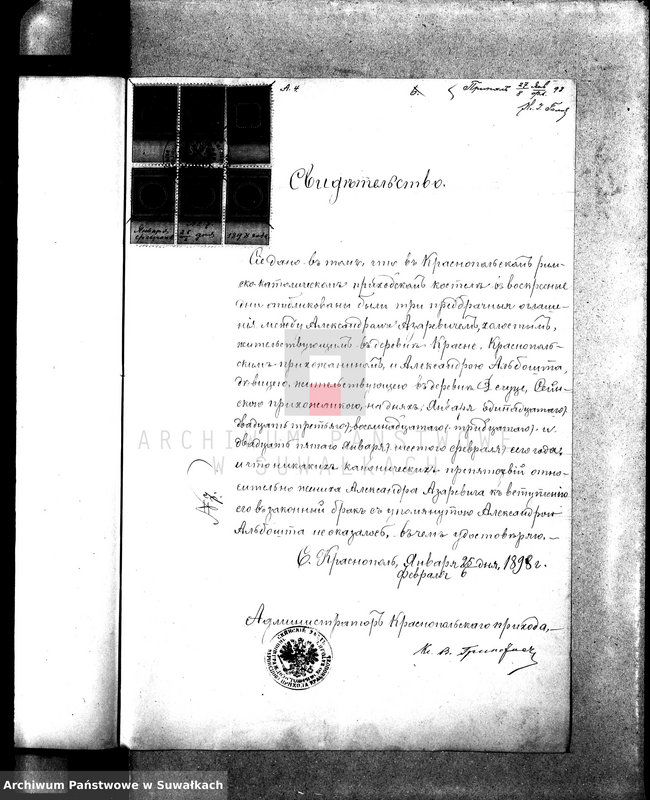 А. 4
27 Янв 98
8 Фев
Свидѣтельство.
Января 25 дня 1898 года
Сіе дано въ томъ, что въ Краснопольскомъ рим-
ско-католическомъ приходскомъ костелѣ въ воскресные
дни опубликованы были три предбрачныя оглаше-
нія между Александромъ Азаревичемъ, холостымъ,
жительствующимъ въ деревнѣ Красне, Краснополь-
скимъ прихожаниномъ, и Александрою Альбошта,
дѣвицею, жительствующею въ деревнѣ Сейн-
скою прихожанкою, на дняхъ: Января одиннадцатаго
(двадцать третьяго), восемнадцатаго (тридцатаго) и
двадцать пятаго Января (шестого февраля) сего года,
и что никакихъ каноническихъ препятствій отно-
сительно жениха Александра Азаревича къ вступленію
его въ законный бракъ съ упомянутою Александрою
Альбошта не оказалось, въ чемъ удостовѣряю.
С. Краснополь, Января 25 дня, 1898 г.
февраля 6
Администраторъ Краснопольскаго прихода,
Кс. В.
ARCHIWUM PAŃSTWOWE
W SUWAŁKACH
Archiwum Państwowe w Suwałkach